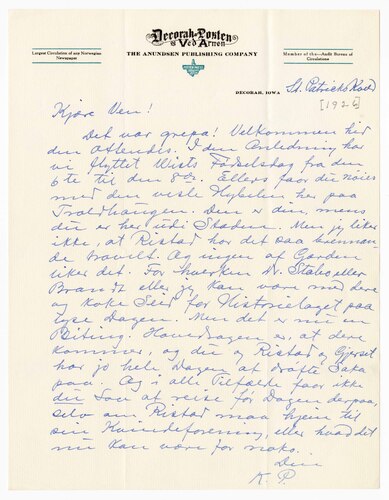 Decorah-Posten
& Ved Arnen
THE ANUNDSEN PUBLISHING COMPANY
Largest Circulation of any Norwegian
Newspaper
Member of the Audit Bureau of
Circulations
DECORAH, IOWA
St. Patricks
[1926]
Kjære Ven!
Det var grepa! Velkommen hid
den Ottendes. I den Anledning har
vi flyttet Wists Födselsdag fra den
6te til den 8de. Ellers faar du nöies
med den vesle Hybelen her paa
Troldhaugen. Den er din, mens
du er her udi Staden. Men jeg liker
ikke, at Ristad har det saa brennan-
de travelt. Og ingen af Garden
liker det. For hverken Dr. Stabo eller
Brandt eller jeg kan være med dere
og koke for Historielaget paa
lyse Dagen. Men det er nu en
Biting. Hovedsagen er, at dere
kommer, og du og Ristad og Gjerset
har jo hele Dagen at dröfte Saka
paa. Og i alle Tilfælde faar ikke
du Lov at reise för Dagen derpaa,
selv om Ristad maa hjem til
sin Kvindeforening, eller hvad det
nu kan være for noko.
Din
K. P.